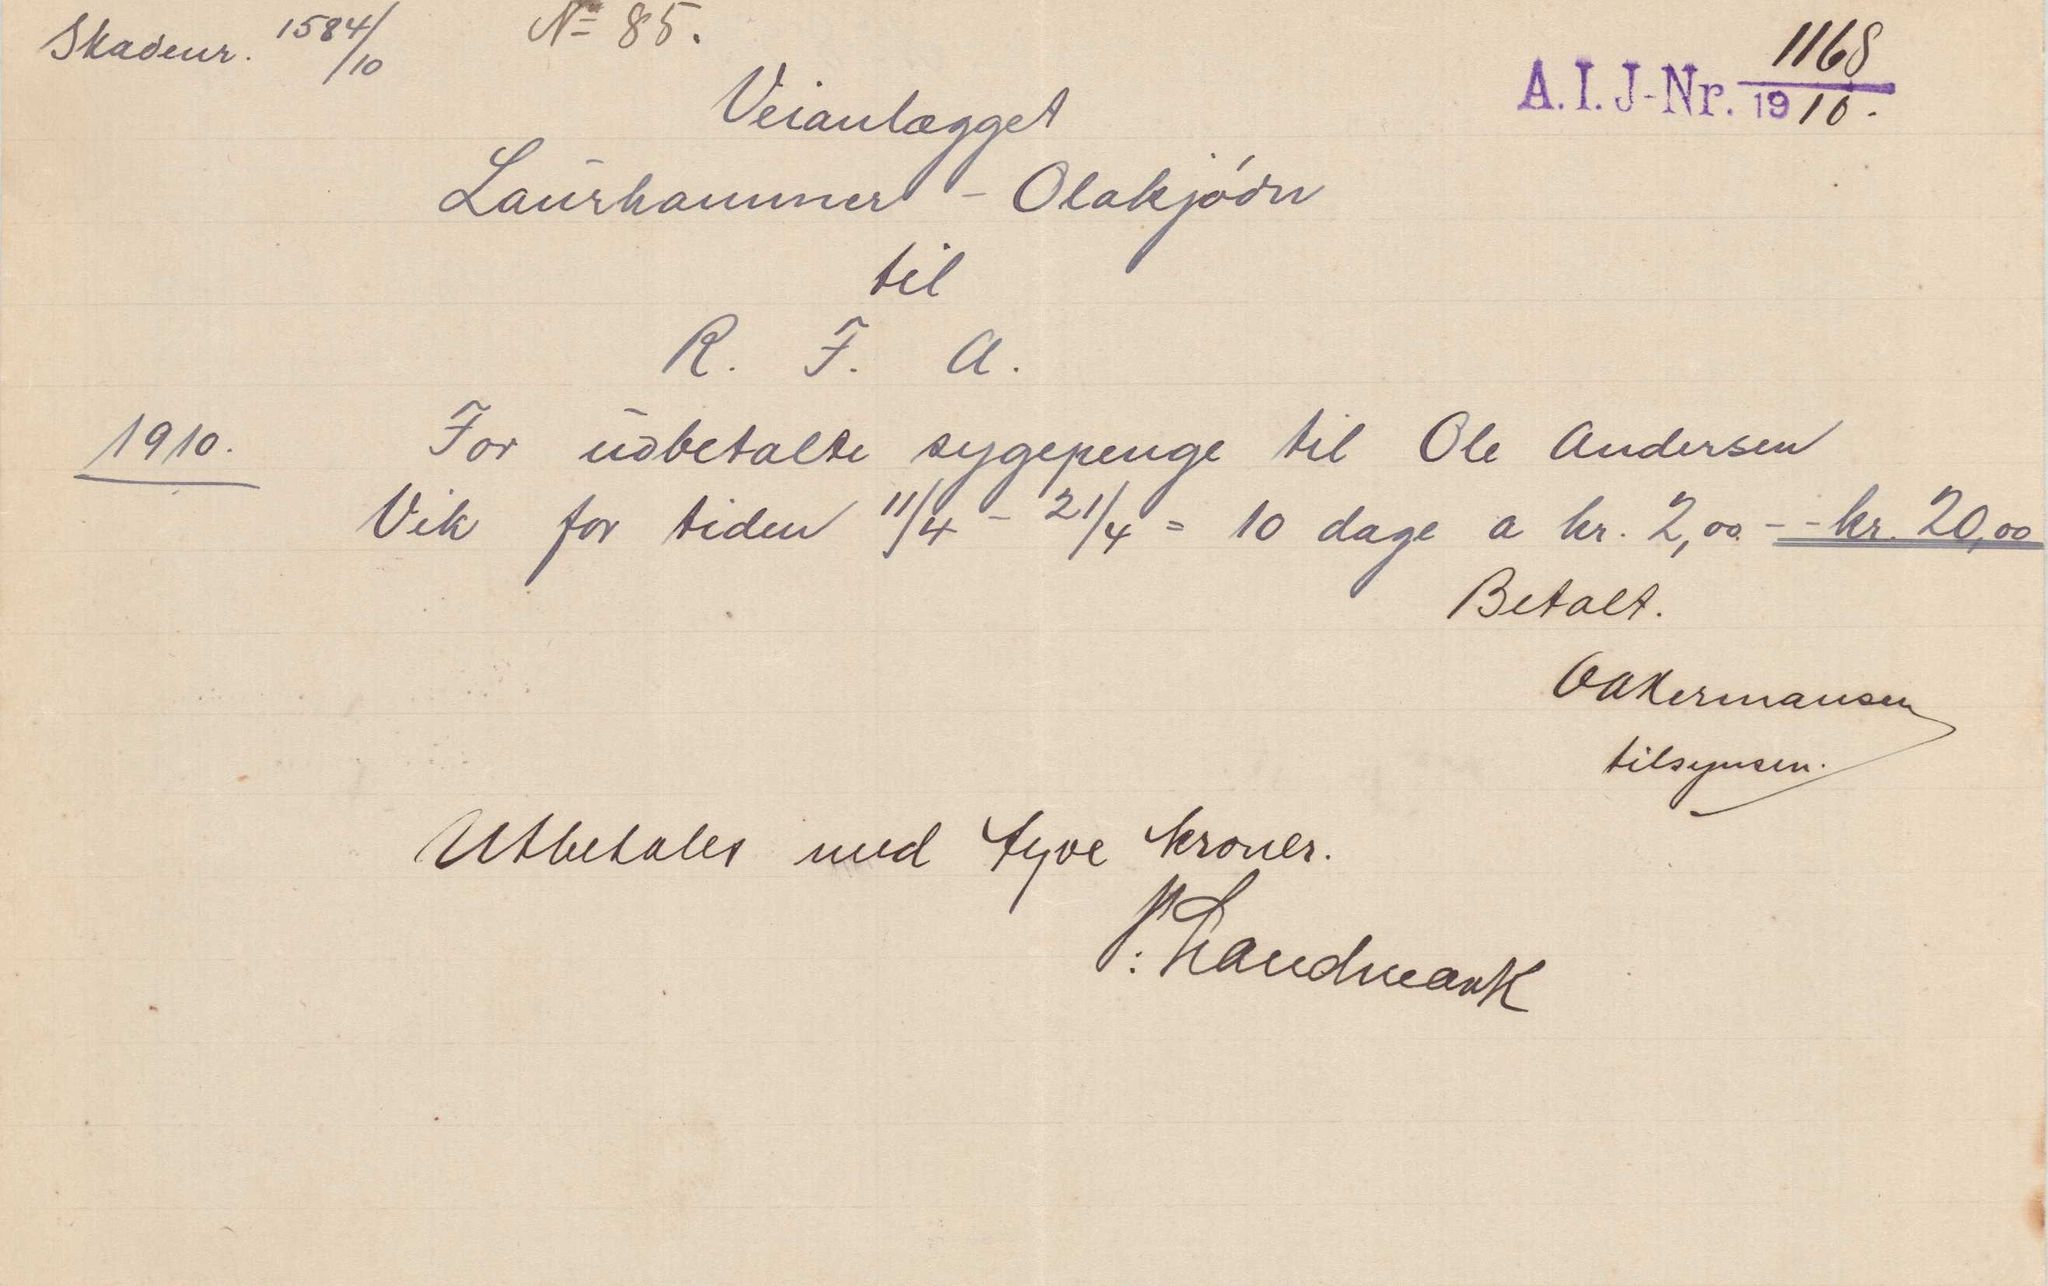 Skadenr. 1584/10 № 85.
A. I. J-Nr. 1168/1910.
Veianlægget
Laurhammer - Olakjødn
til
R. F. A.
1910. For udbetalte sygepenge til Ole Andersen
Vik for tiden 11/4 - 21/4 = 10 dage a kr. 2,00 - - kr. 20,00
Betalt.
OAHermansen
tilsynsm.
Utbetales med tyve kroner.
Landmark